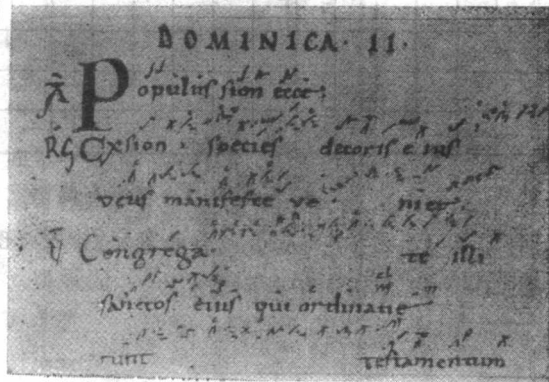 DOMINICA · II ·
A Populus sion ecce:
RG Ex sion · species decoris eius
deus manifeste ve niet
V Congrega te illi
sanctos eius qui ordinave
runt testamentum